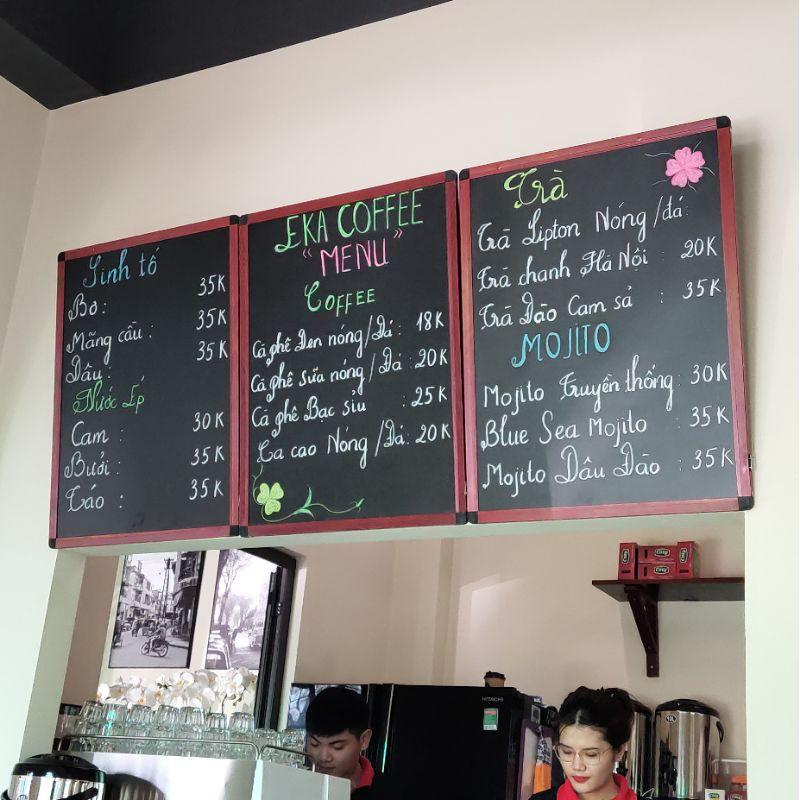 Sinh tố
Bơ: 35K
Mãng cầu: 35K
Dâu: 35K
Nước Ép
Cam : 30K
Bưởi : 35K
Táo : 35K
EKA COFFEE
"MENU"
COFFEE
Cà phê Đen nóng/Đá: 18K
Cà phê Sữa nóng/Đá: 20K
Cà phê Bạc sỉu : 25K
Ca cao Nóng/Đá: 20K
Trà
Trà Lipton Nóng/đá:
Trà chanh Hà Nội : 20K
Trà Đào Cam sả : 35K
MOJITO
Mojito Truyền thống: 30K
Blue Sea Mojito : 35K
Mojito Dâu Đào : 35K
HITACHI